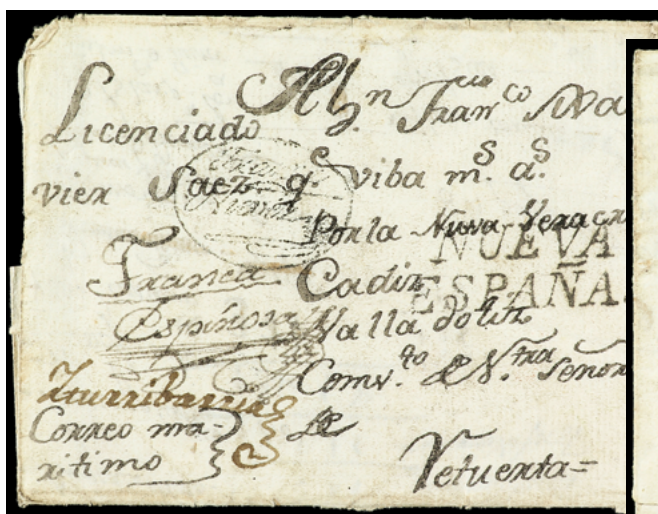 Al
Licenciado Dn Franco
vier Saez q.e viba ms. as.
Por la Nueva Veracr
NUEVA
ESPAÑA.
Franca
Cadiz
Espinosa
Valladoliz
Comv.to de N.tra Señor
Yturribarria
de
Correo ma-
ritimo
Retuerta=